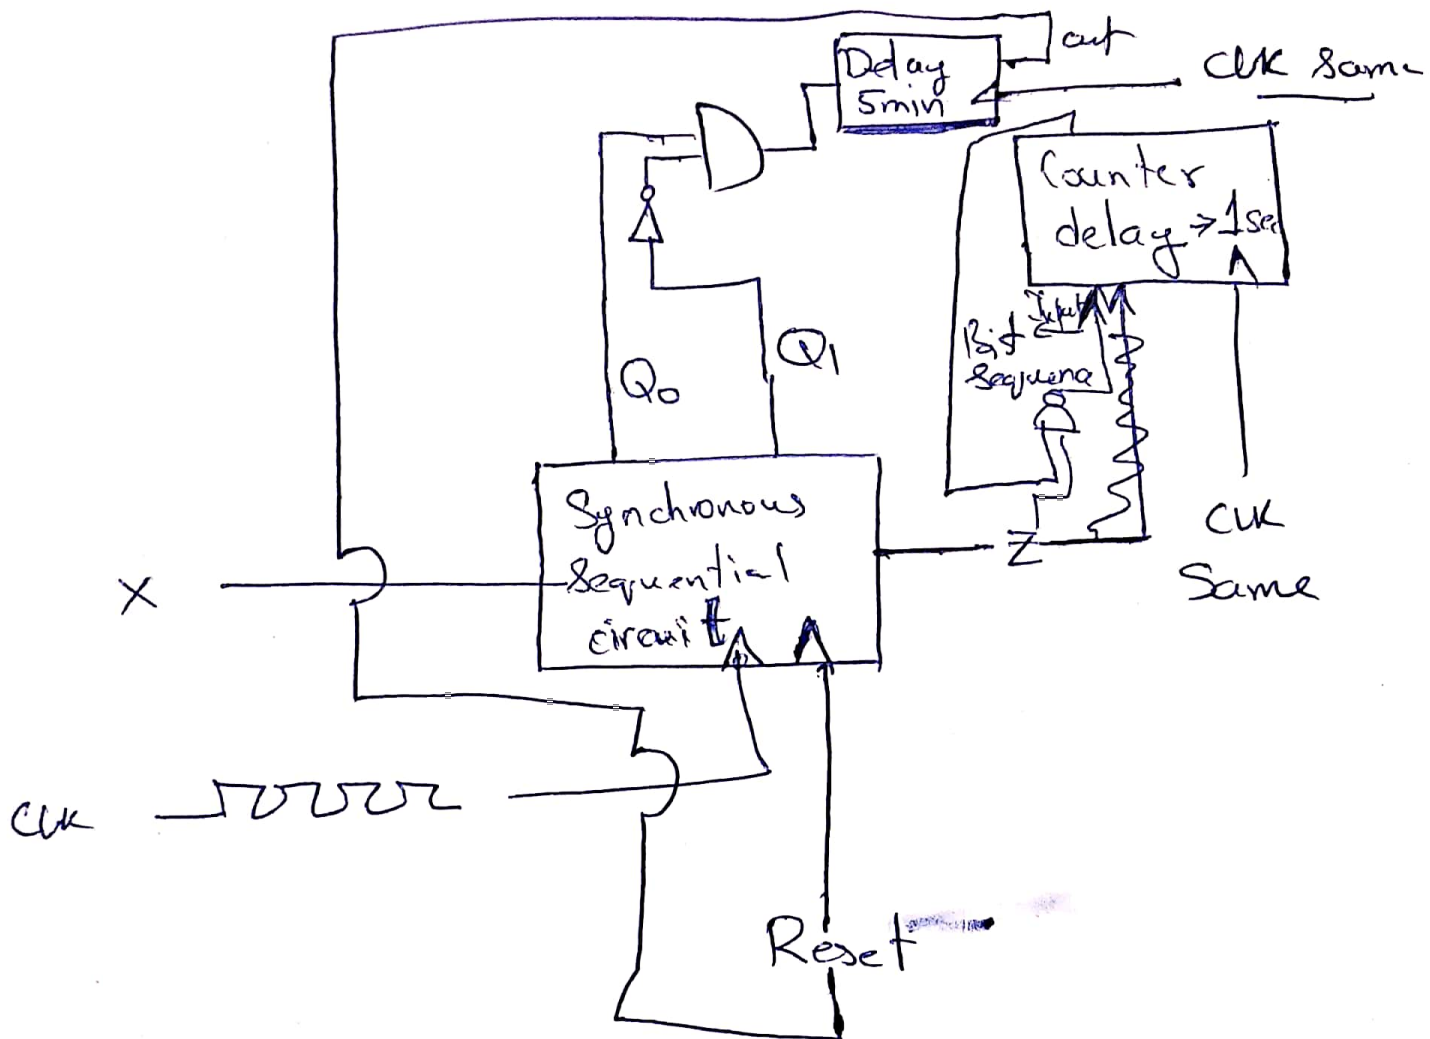 out
Delay
5min
CLK Same
Counter
delay → 1sec
Input
Bit
Sequence
Q0
Q1
Synchronous
Sequential
circuit
Z
CLK
Same
X
CLK
Reset